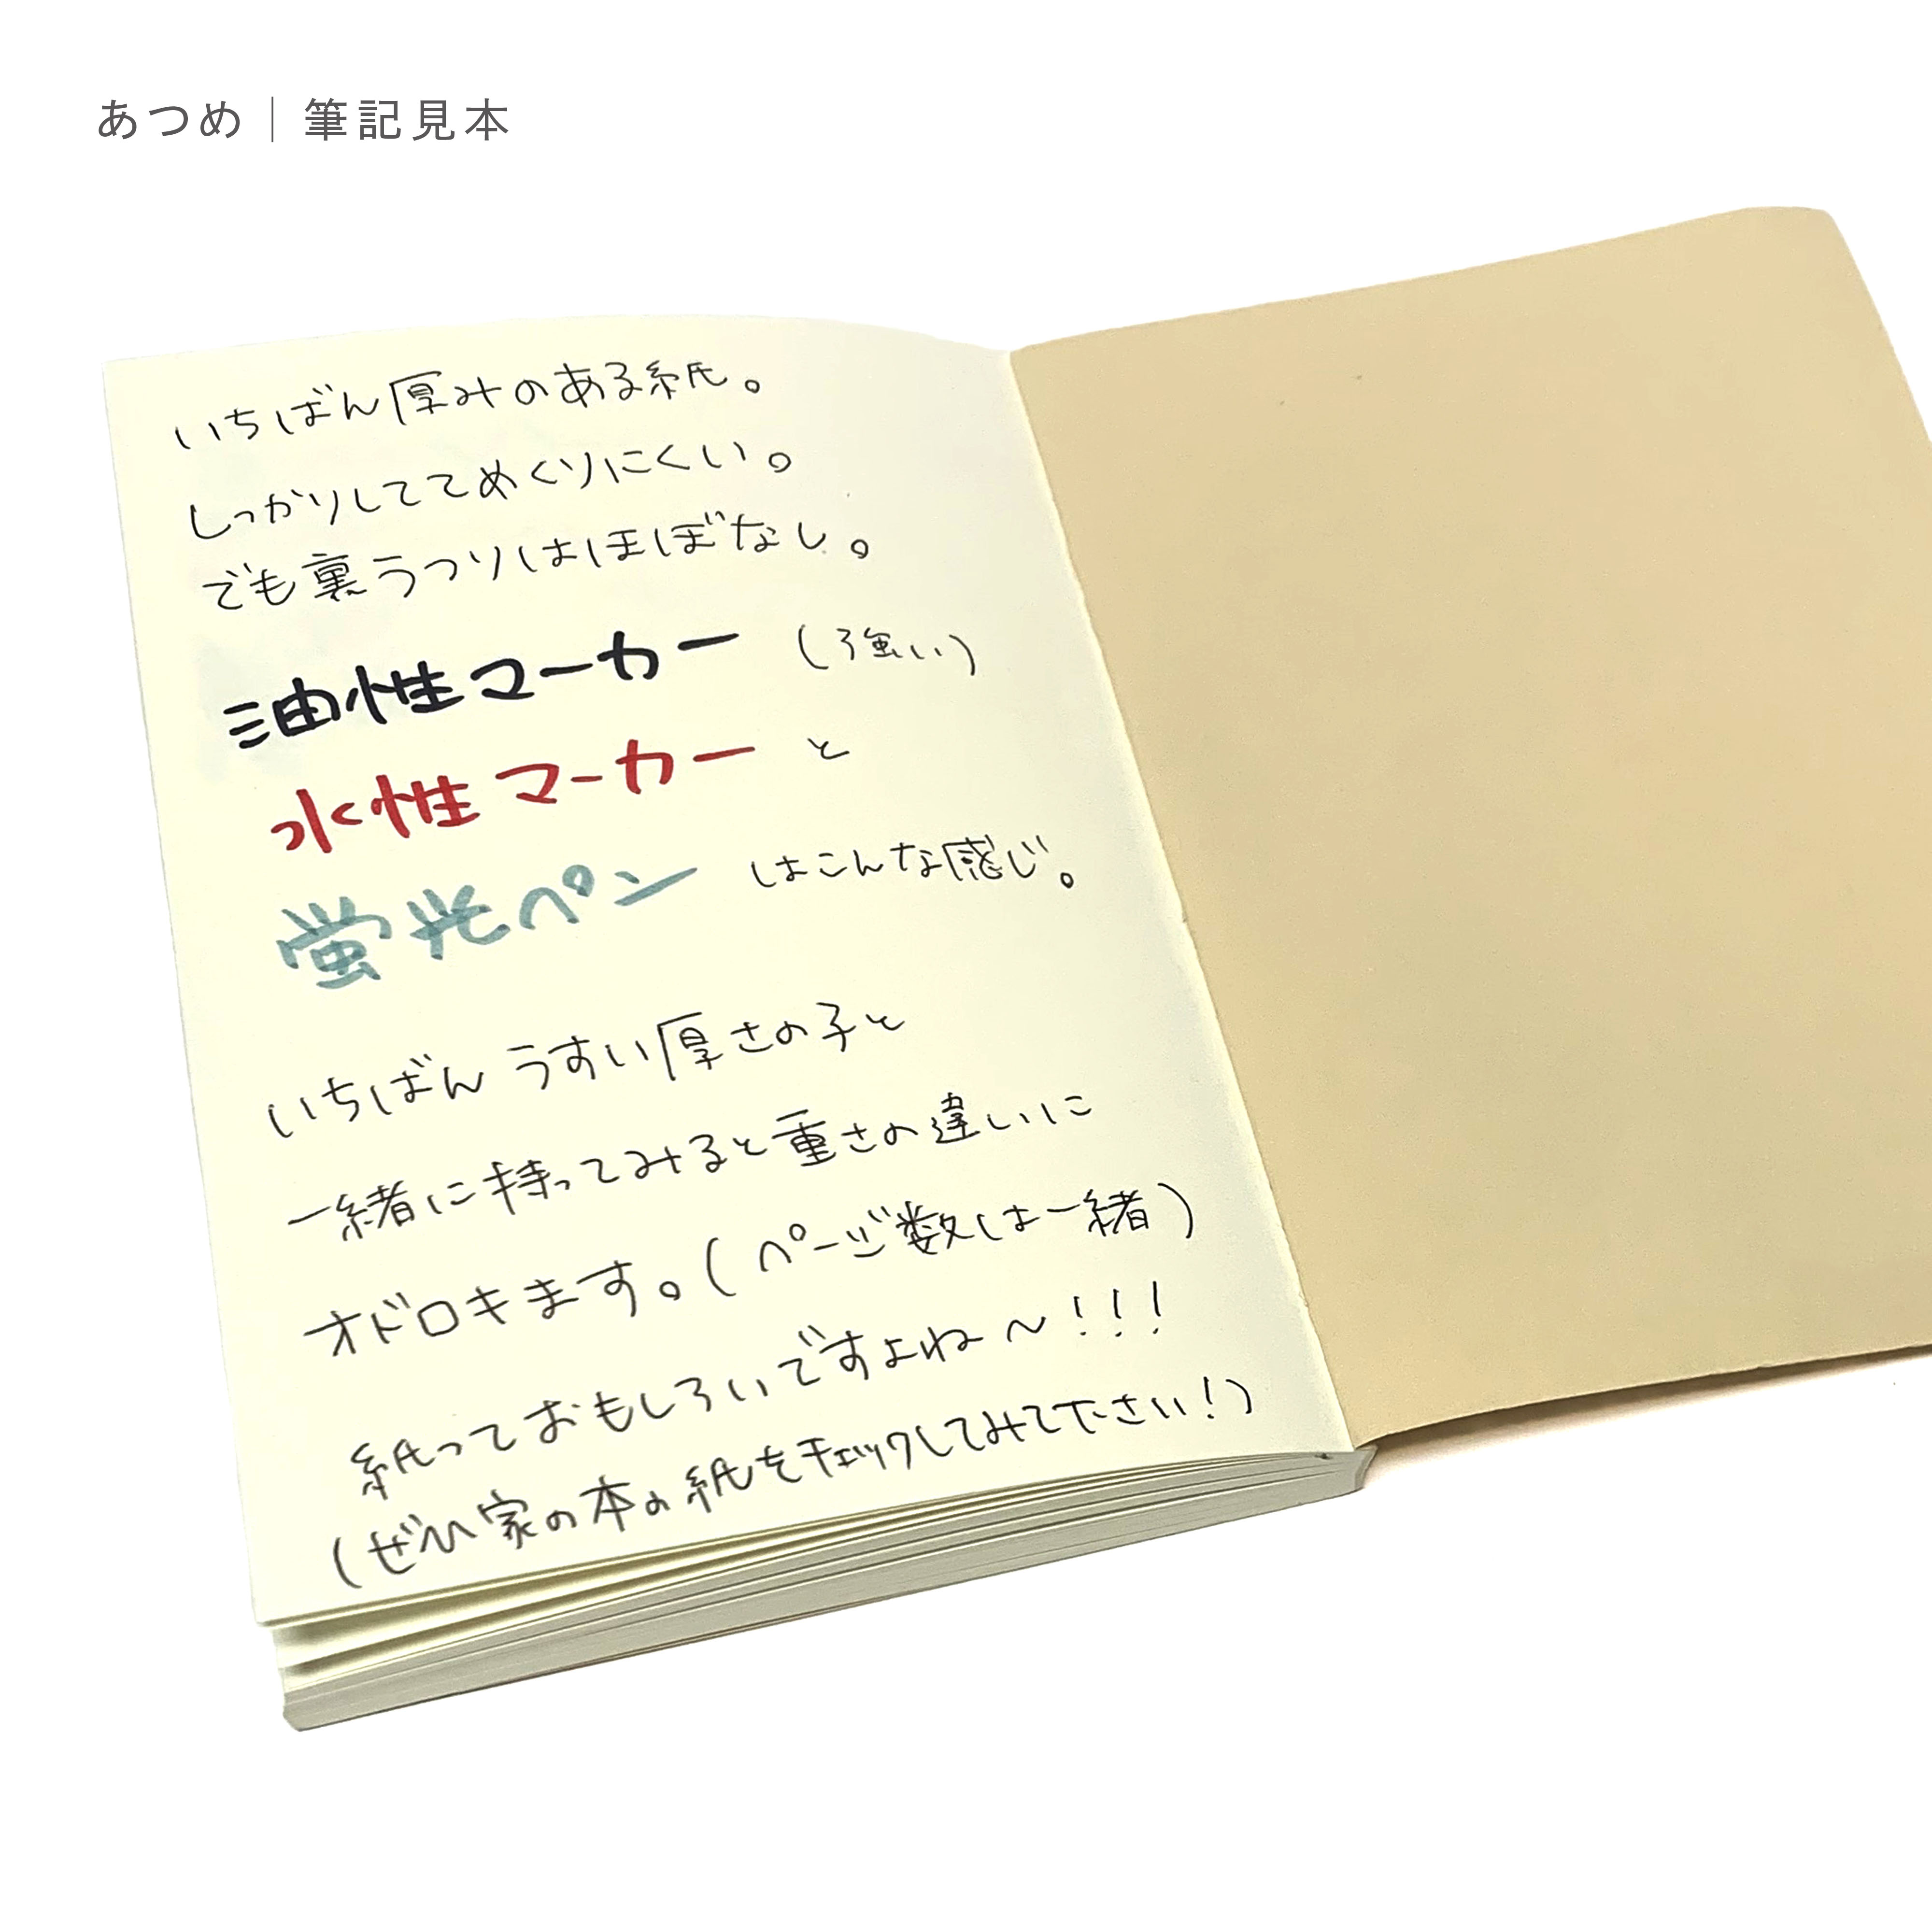 あつめ｜筆記見本
いちばん厚みのある紙。
しっかりしててめくりにくい。
でも裏うつりはほぼなし。
油性マーカー（強い）
水性マーカーと
蛍光ペンはこんな感じ。
いちばんうすい厚さの子と
一緒に持ってみると重さの違いに
オドロキます。（ページ数は一緒）
紙っておもしろいですよね～!!!
（ぜひ家の本の紙をチェックしてみて下さい!）